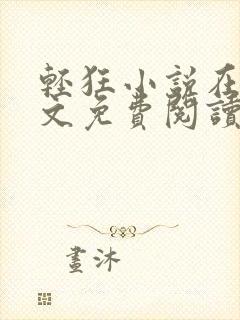 輕狂小說在
文免費閱讀
畫沐